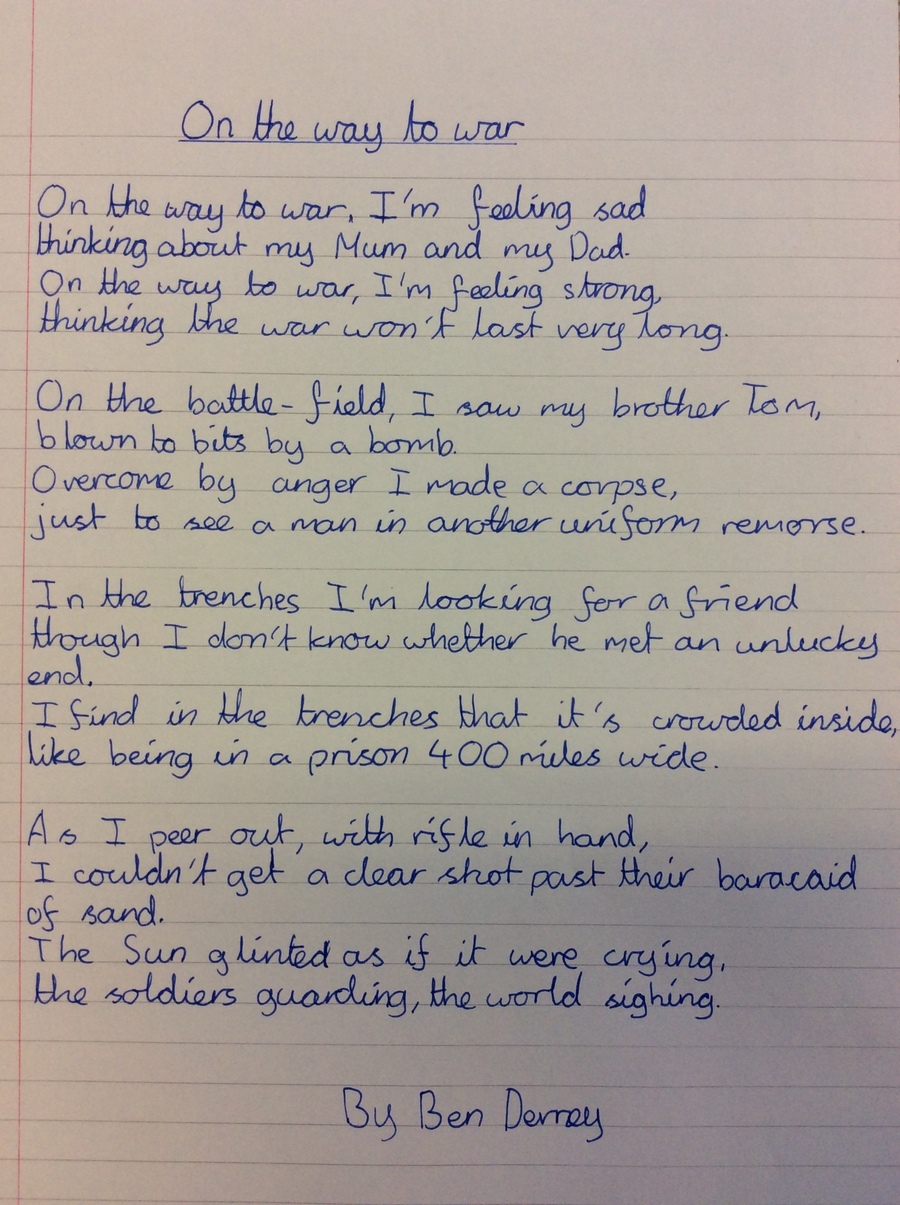 On the way to war
On the way to war, I'm feeling sad
thinking about my Mum and my Dad.
On the way to war, I'm feeling strong,
thinking the war won't last very long.
On the battle-field, I saw my brother Tom,
blown to bits by a bomb.
Overcome by anger I made a corpse,
just to see a man in another uniform remorse.
In the trenches I'm looking for a friend
though I don't know whether he met an unlucky
end.
I find in the trenches that it's crowded inside,
like being in a prison 400 miles wide.
As I peer out, with rifle in hand,
I couldn't get a clear shot past their baracaid
of sand.
The Sun glinted as if it were crying,
the soldiers guarding, the world sighing.
By Ben